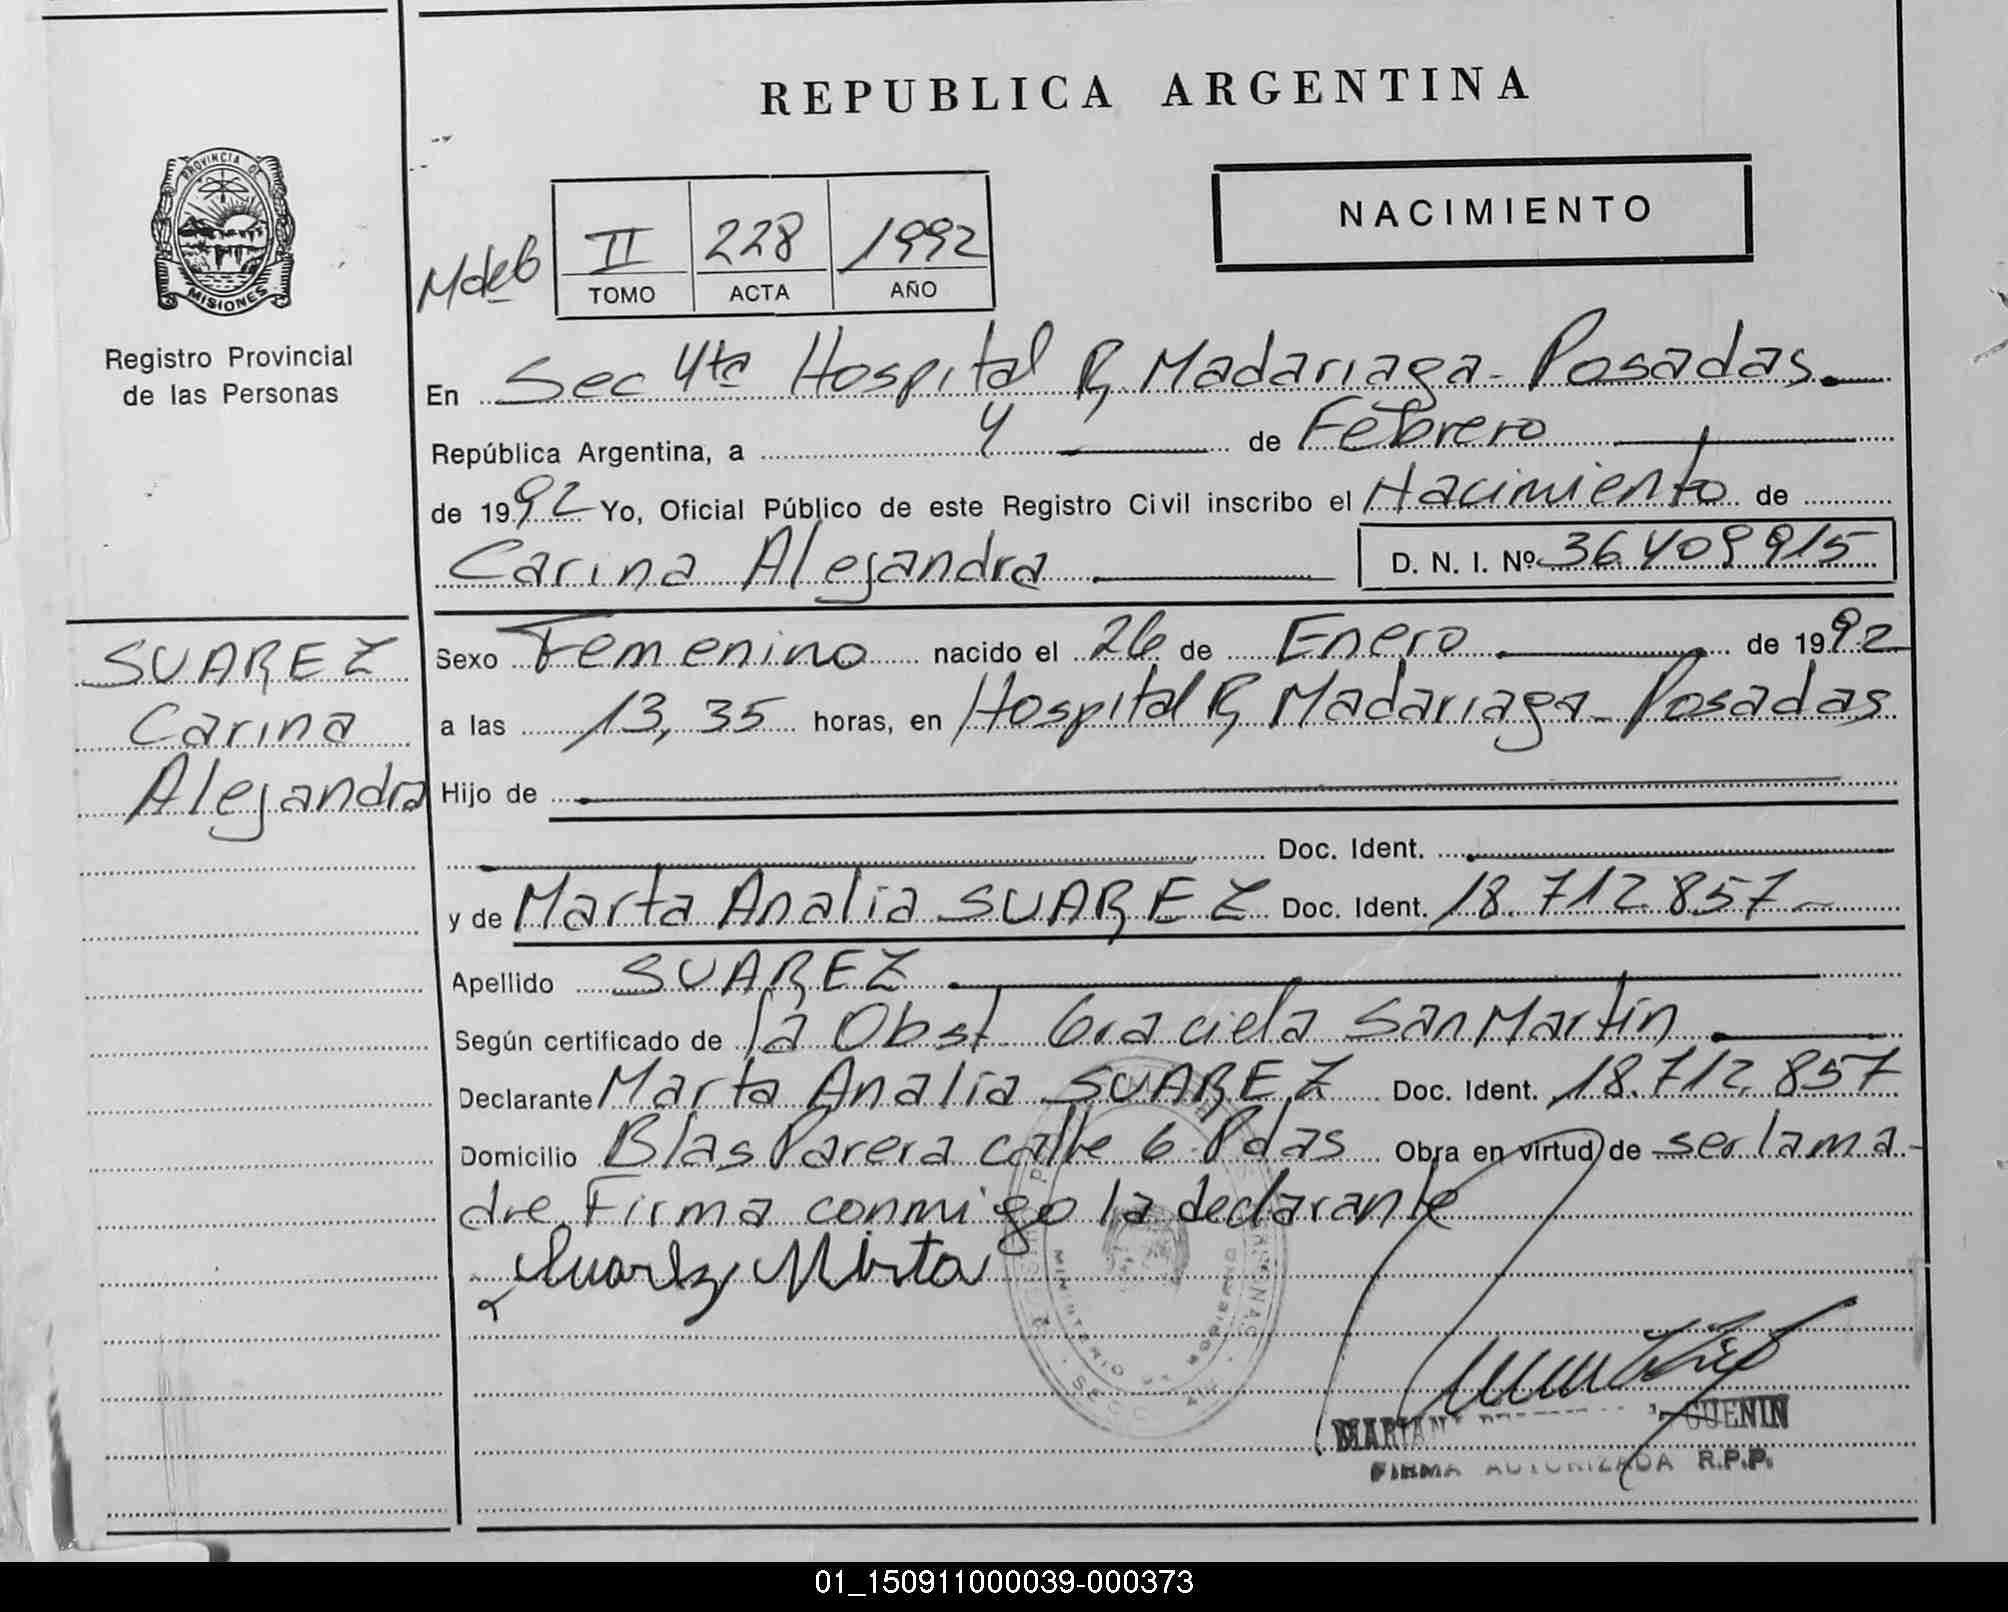 REPUBLICA ARGENTINA
NACIMIENTO
PROVINCIA DE
MISIONES
Registro Provincial
de las Personas
II 228 1992
TOMO ACTA AÑO
En Sec 4ta Hospital R, Madariaga - Posadas.
República Argentina, a 4 de Febrero
de 1992 Yo, Oficial Público de este Registro Civil inscribo el Nacimiento de
Carina Alejandra D. N. I. Nº 36.409915
SUAREZ
Carina
Alejandra
Sexo Femenino nacido el 26 de Enero de 1992
a las 13,35 horas, en Hospital R, Madariaga - Posadas
Hijo de
Doc. Ident.
y de Marta Analia SUAREZ Doc. Ident. 18.712.857-
Apellido SUAREZ
Según certificado de la Obst Graciela San Martin
Declarante Marta Analia SUAREZ Doc. Ident. 18.712.857
Domicilio Blas Parera calle 6 - Pdas Obra en virtud de ser la ma-
dre Firma conmigo la declarante
Suarez Mirta
MINISTERIO DE GOBIERNO
GUENIN
FIRMA AUTORIZADA R.P.P.
01_150911000039-000373